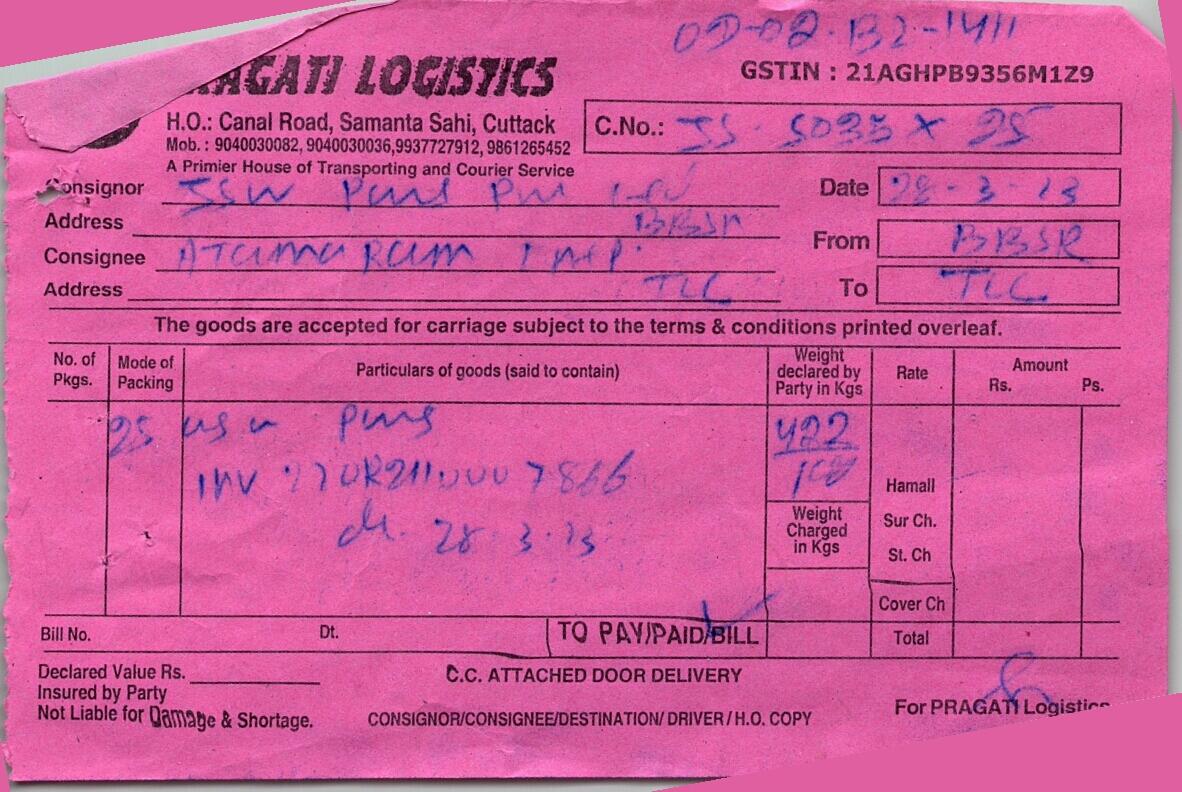 OD-02-BZ-1411
PRAGATI LOGISTICS
GSTIN : 21AGHPB9356M1Z9
H.O.: Canal Road, Samanta Sahi, Cuttack
C.No.: JS-5035 x 25
Mob. : 9040030082, 9040030036,9937727912, 9861265452
A Primier House of Transporting and Courier Service
Consignor JSW
Date 28-3-23
Address BBSR
From BBSR
Consignee
Address TLC
To TLC
The goods are accepted for carriage subject to the terms & conditions printed overleaf.
No. of Pkgs. Mode of Packing Particulars of goods (said to contain) Weight declared by Party in Kgs Rate Amount Rs. Ps.
25 422
INV
Hamall
28.3.23
Weight Charged in Kgs
Sur Ch.
St. Ch
Cover Ch
Bill No. Dt. TO PAY/PAID/BILL Total
Declared Value Rs.
C.C. ATTACHED DOOR DELIVERY
Insured by Party
Not Liable for Damage & Shortage.
CONSIGNOR/CONSIGNEE/DESTINATION/ DRIVER / H.O. COPY
For PRAGATI Logistics